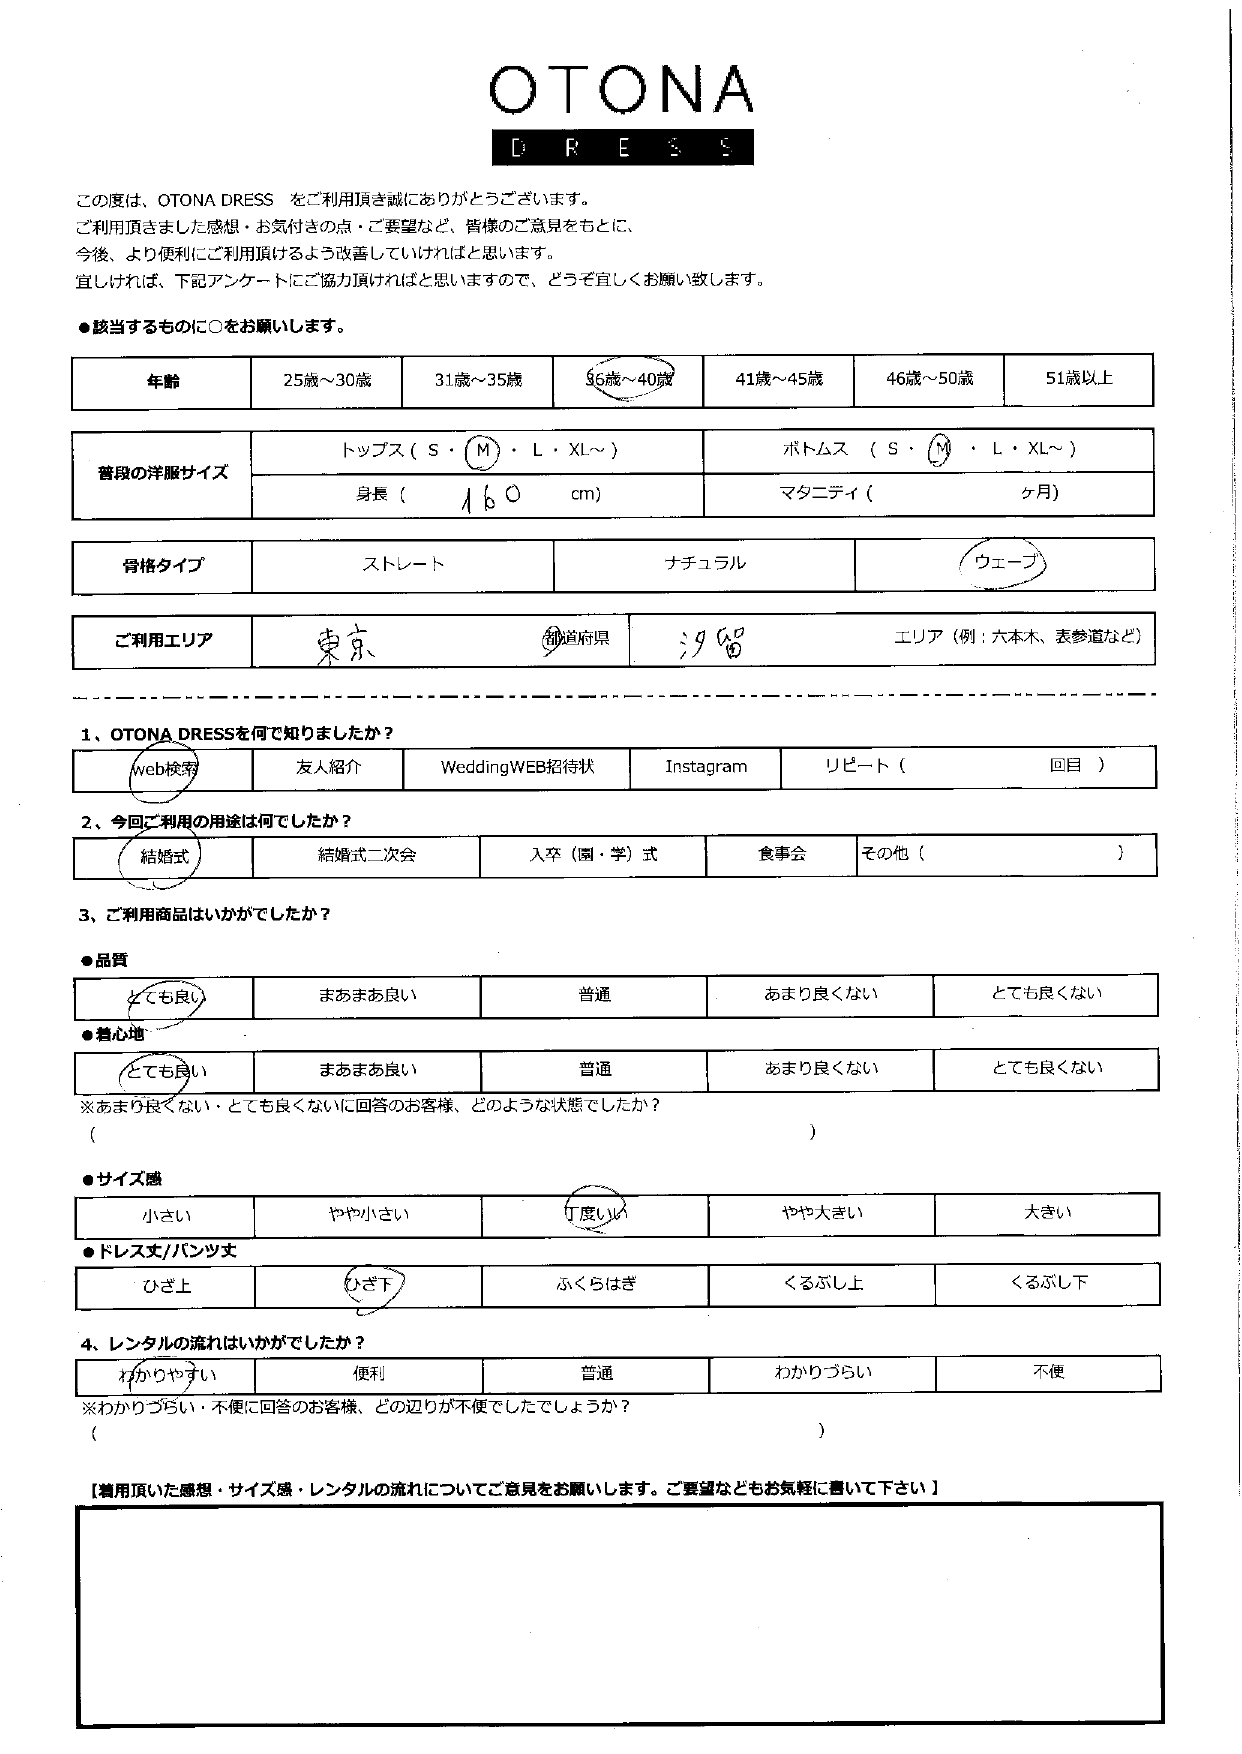 OTONA
DRESS
この度は、OTONA DRESS をご利用頂き誠にありがとうございます。
ご利用頂きました感想・お気付きの点・ご要望など、皆様のご意見をもとに、
今後、より便利にご利用頂けるよう改善していければと思います。
宜しければ、下記アンケートにご協力頂ければと思いますので、どうぞ宜しくお願い致します。
●該当するものに○をお願いします。
年齢 25歳～30歳 31歳～35歳 36歳～40歳 41歳～45歳 46歳～50歳 51歳以上
普段の洋服サイズ トップス ( S ・ M ・ L ・ XL～ ) ボトムス ( S ・ M ・ L ・ XL～ )
身長 ( 160 cm) マタニティ ( ケ月)
骨格タイプ ストレート ナチュラル ウェーブ
ご利用エリア 東京 都道府県 汐留 エリア（例：六本木、表参道など）
1、OTONA DRESSを何で知りましたか？
web検索 友人紹介 WeddingWEB招待状 Instagram リピート ( 回目 )
2、今回ご利用の用途は何でしたか？
結婚式 結婚式二次会 入卒（園・学）式 食事会 その他 ( )
3、ご利用商品はいかがでしたか？
●品質
とても良い まあまあ良い 普通 あまり良くない とても良くない
●着心地
とても良い まあまあ良い 普通 あまり良くない とても良くない
※あまり良くない・とても良くないに回答のお客様、どのような状態でしたか？
( )
●サイズ感
小さい やや小さい 丁度いい やや大きい 大きい
●ドレス丈/パンツ丈
ひざ上 ひざ下 ふくらはぎ くるぶし上 くるぶし下
4、レンタルの流れはいかがでしたか？
わかりやすい 便利 普通 わかりづらい 不便
※わかりづらい・不便に回答のお客様、どの辺りが不便でしたでしょうか？
( )
【着用頂いた感想・サイズ感・レンタルの流れについてご意見をお願いします。ご要望などもお気軽に書いて下さい】